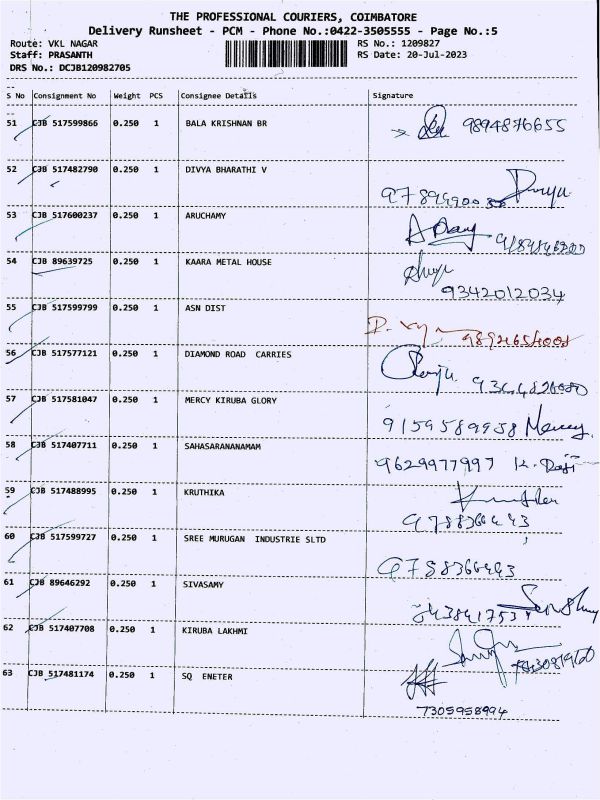 THE PROFESSIONAL COURIERS, COIMBATORE
Delivery Runsheet - PCM - Phone No.:0422-3505555 - Page No.:5
Route: VKL NAGAR RS No.: 1209827
Staff: PRASANTH RS Date: 20-Jul-2023
DRS No.: DCJB120982705
S No Consignment No Weight PCS Consignee Details Signature
51 CJB 517599866 0.250 1 BALA KRISHNAN BR 9894876655
52 CJB 517482790 0.250 1 DIVYA BHARATHI V Divya
53 CJB 517600237 0.250 1 ARUCHAMY
54 CJB 89639725 0.250 1 KAARA METAL HOUSE
9342012034
55 CJB 517599799 0.250 1 ASN DIST
56 CJB 517577121 0.250 1 DIAMOND ROAD CARRIES
57 CJB 517581047 0.250 1 MERCY KIRUBA GLORY
9159589958 Mercy
58 CJB 517407711 0.250 1 SAHASARANANAMAM
9629977997 K. Raji
59 CJB 517488995 0.250 1 KRUTHIKA
60 CJB 517599727 0.250 1 SREE MURUGAN INDUSTRIE SLTD
61 CJB 89646292 0.250 1 SIVASAMY
62 CJB 517407708 0.250 1 KIRUBA LAKHMI
63 CJB 517481174 0.250 1 SQ ENETER
7305958994